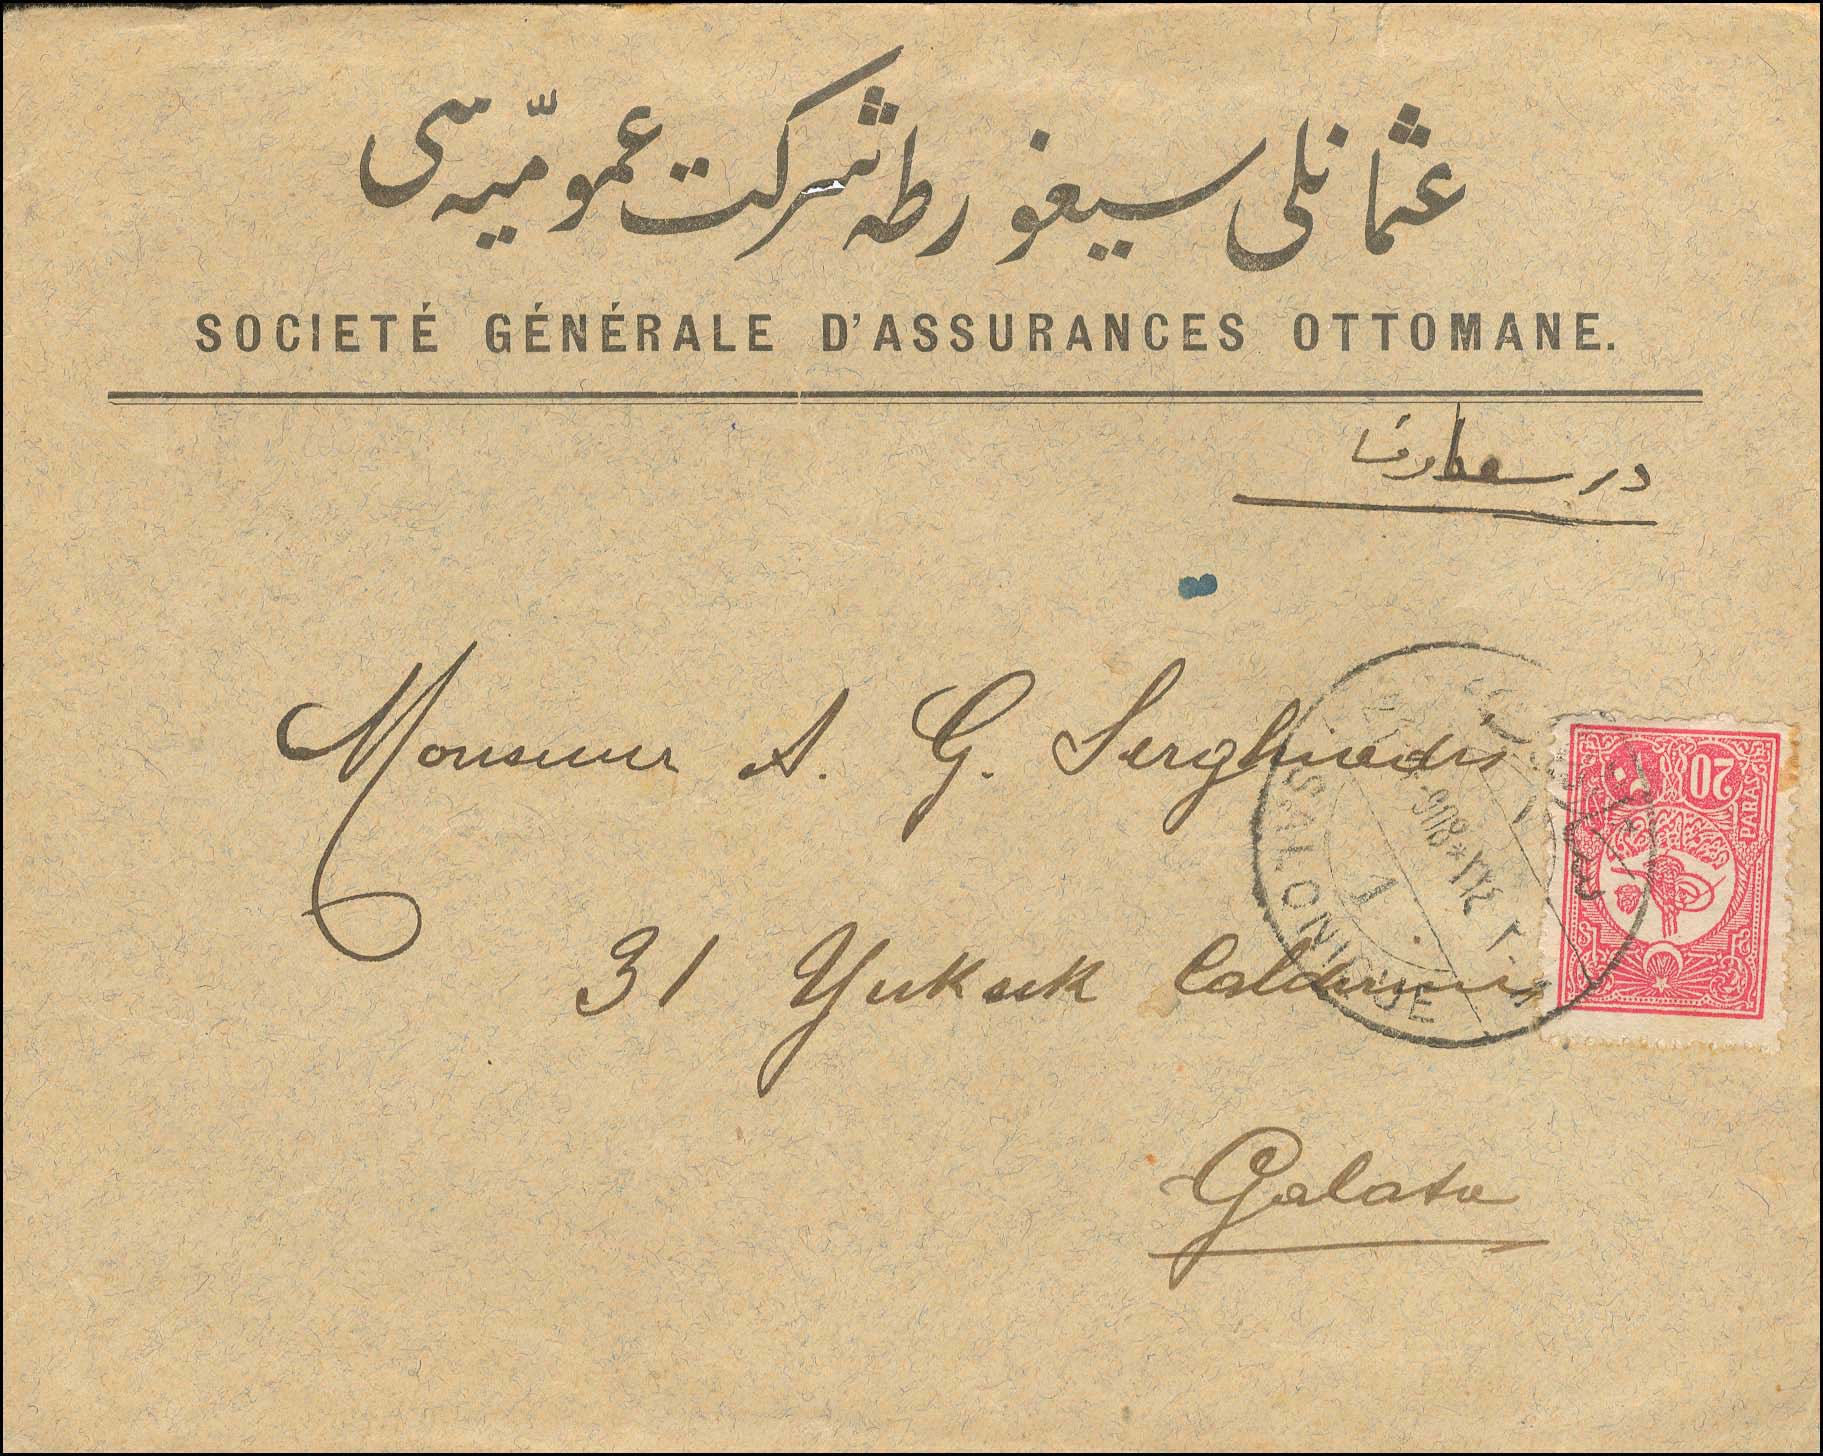 عثمانلی سیغورطه شرکت عمومیّه سی
SOCIETÉ GÉNÉRALE D'ASSURANCES OTTOMANE.
در سعادت
Monsieur A. G. Serghiadis
31 Yuksek Calderim
Galata
SALONIQUE
1
20 PARAS
٢٠